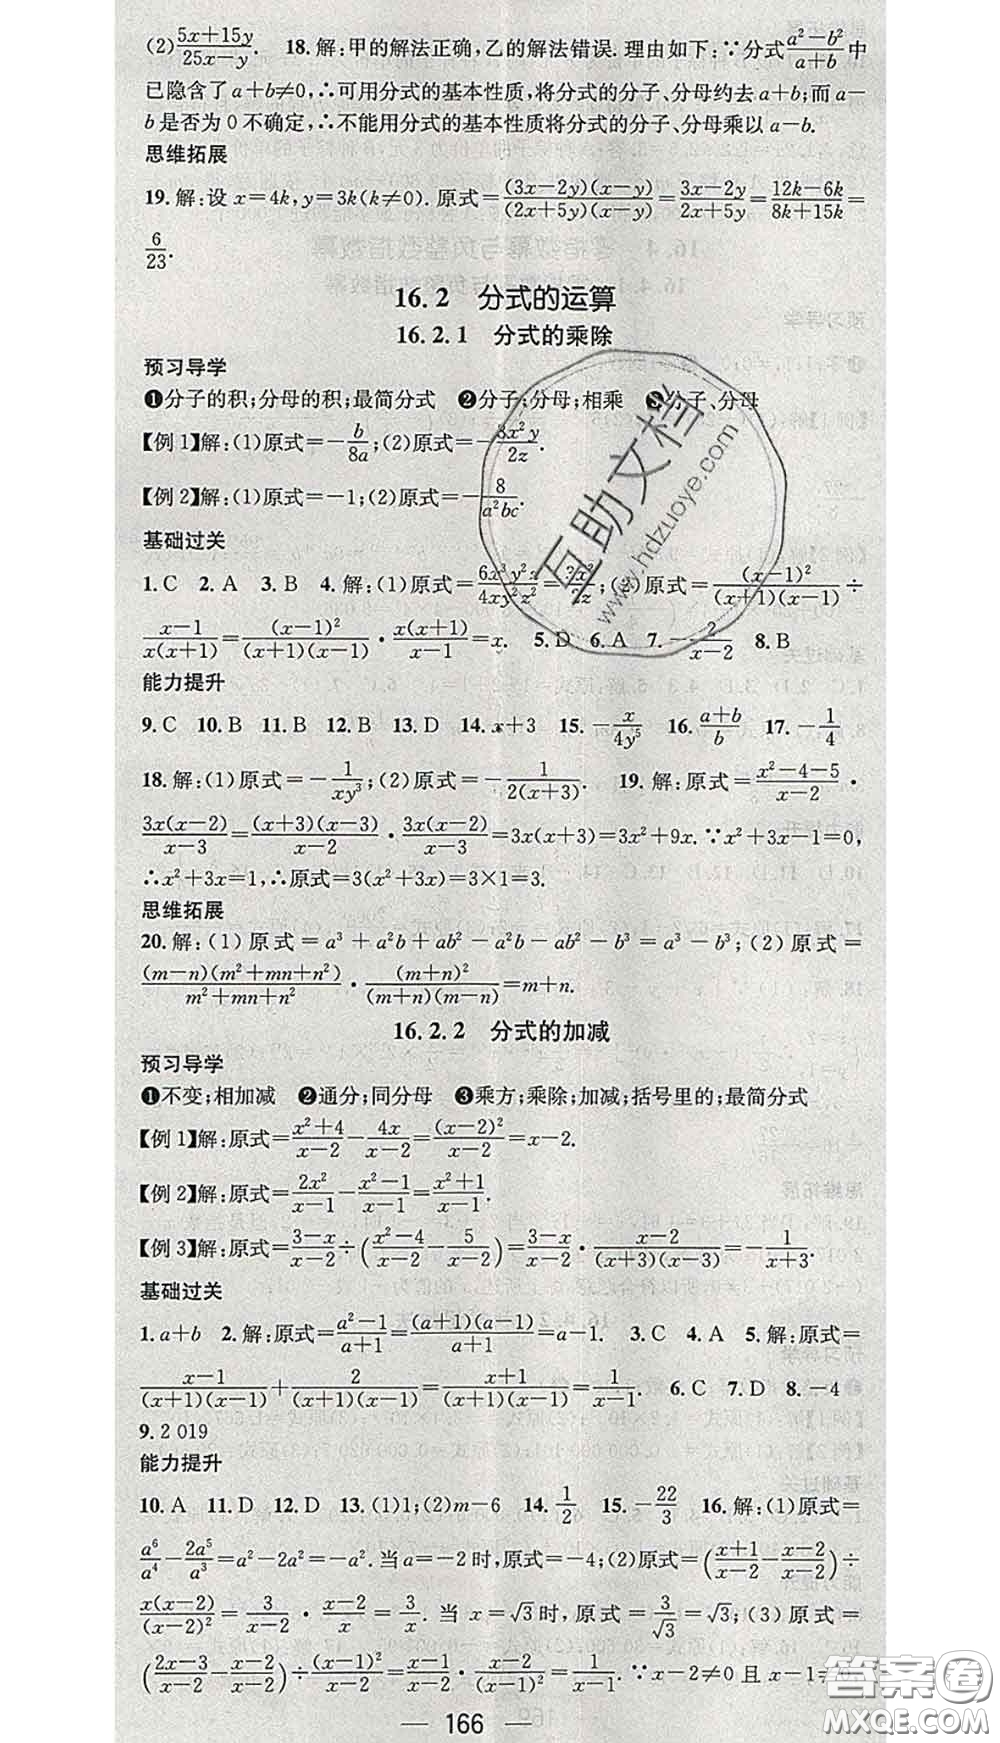 (2)(5x+15y)/(25x−y). 18.解:甲的解法正确,乙的解法错误.理由如下:∵分式(a²−b²)/(a+b)中
已隐含了a+b≠0,∴可用分式的基本性质,将分式的分子、分母约去a+b;而a−
b是否为0不确定,∴不能用分式的基本性质将分式的分子、分母乘以a−b.
思维拓展
19.解:设x=4k,y=3k(k≠0).原式=(3x−2y)(x−y)/(2x+5y)(x−y)=(3x−2y)/(2x+5y)=(12k−6k)/(8k+15k)=
6/23.
16.2 分式的运算
16.2.1 分式的乘除
预习导学
❶分子的积;分母的积;最简分式 ❷分子;分母;相乘 ❸分子、分母
【例1】解:(1)原式=−b/8a;(2)原式=−3x²y/2z.
【例2】解:(1)原式=−1;(2)原式=−8/a²bc.
基础过关
1.C 2.A 3.B 4.解:(1)原式=6x³y²z/4xy²z²=3x²/2z;(2)原式=(x−1)²/(x+1)(x−1)÷
(x−1)/x(x+1)=(x−1)²/(x+1)(x−1)·x(x+1)/(x−1)=x. 5.D 6.A 7.−2/(x−2) 8.B
能力提升
9.C 10.B 11.B 12.B 13.D 14.x+3 15.−x/4y⁵ 16.(a+b)/b 17.−1/4
18.解:(1)原式=−1/xy³;(2)原式=−1/2(x+3). 19.解:原式=(x²−4−5)/(x−2)·
3x(x−2)/(x−3)=(x+3)(x−3)/(x−2)·3x(x−2)/(x−3)=3x(x+3)=3x²+9x.∵x²+3x−1=0,
∴x²+3x=1,∴原式=3(x²+3x)=3×1=3.
思维拓展
20.解:(1)原式=a³+a²b+ab²−a²b−ab²−b³=a³−b³;(2)原式=
(m−n)(m²+mn+n²)/(m²+mn+n²)·(m+n)²/(m+n)(m−n)=m+n.
16.2.2 分式的加减
预习导学
❶不变;相加减 ❷通分;同分母 ❸乘方;乘除;加减;括号里的;最简分式
【例1】解:原式=(x²+4)/(x−2)−4x/(x−2)=(x−2)²/(x−2)=x−2.
【例2】解:原式=2x²/(x−1)−(x²−1)/(x−1)=(x²+1)/(x−1).
【例3】解:原式=(3−x)/(x−2)÷((x²−4)/(x−2)−5/(x−2))=(3−x)/(x−2)·(x−2)/(x+3)(x−3)=−1/(x+3).
基础过关
1.a+b 2.解:原式=(a²−1)/(a+1)=(a+1)(a−1)/(a+1)=a−1. 3.C 4.A 5.解:原式=
(x−1)/(x+1)(x−1)+2/(x+1)(x−1)=(x+1)/(x+1)(x−1)=1/(x−1). 6.C 7.D 8.−4
9.2 019
能力提升
10.A 11.D 12.D 13.(1)1;(2)m−6 14.1/2 15.−22/3 16.解:(1)原式=
a⁶/a⁴−2a⁵/a³=a²−2a²=−a².当a=−2时,原式=−4;(2)原式=((x+1)/(x−2)−(x−2)/(x−2))÷
x(x−2)/(x−2)²=3/(x−2)·(x−2)/x=3/x.当x=√3时,原式=3/√3=√3;(3)原式=
((2x−3)/(x−2)−(x−2)/(x−2))÷(x−1)²/(x−2)=(x−1)/(x−2)·(x−2)/(x−1)²=1/(x−1).∵x−2≠0且x−1≠0,
— 166 —
互助文档
www.hdzuoye.com
答案圈
MXQE.COM